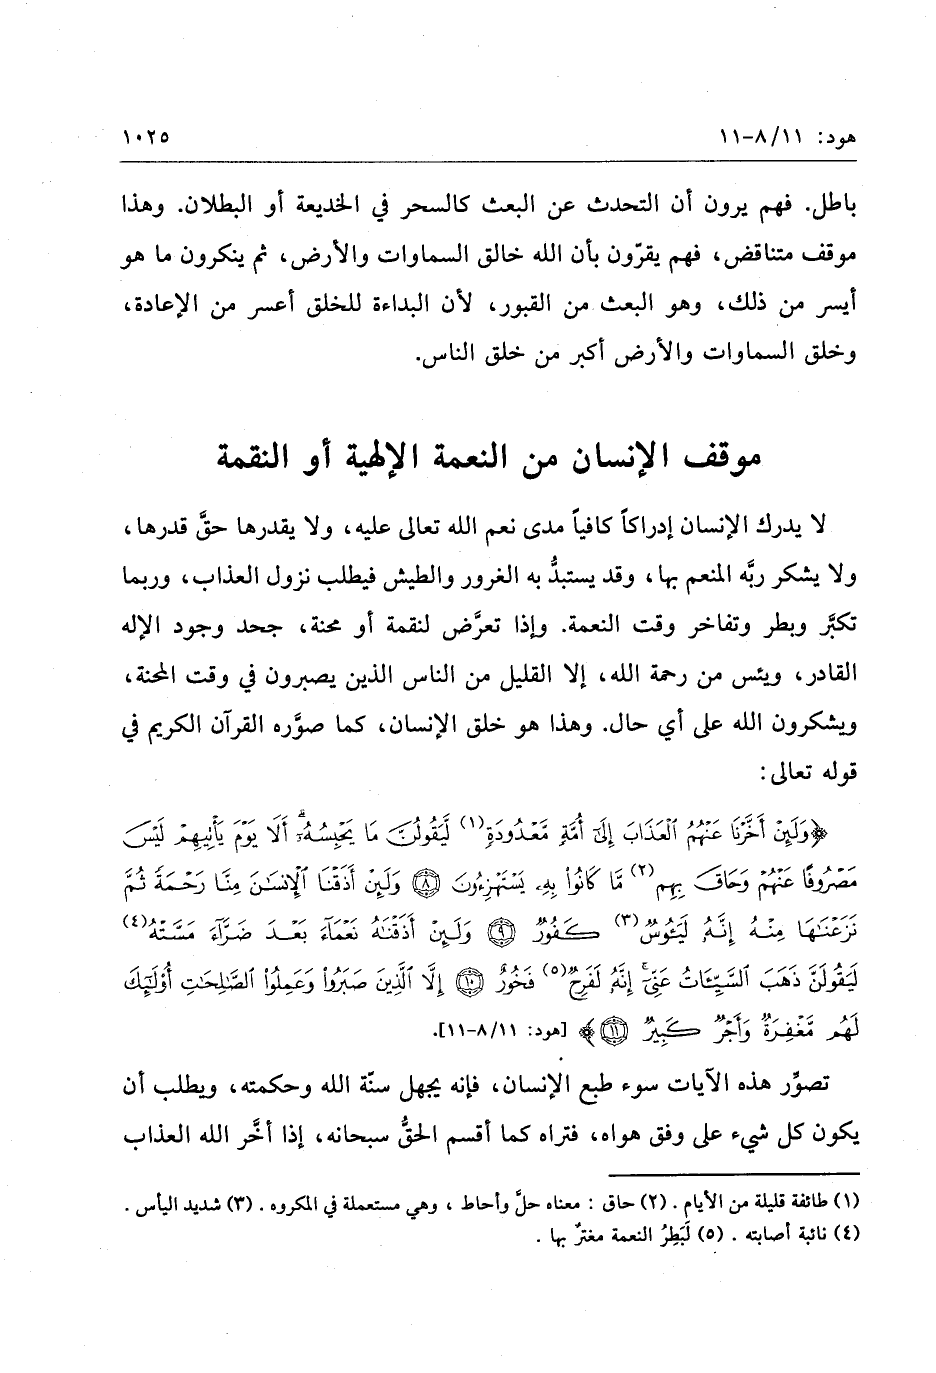 هود: ١١/ ٨-١١ ١٠٢٥
باطل. فهم يرون أن التحدث عن البعث كالسحر في الخديعة أو البطلان. وهذا
موقف متناقض، فهم يقرّون بأن الله خالق السماوات والأرض، ثم ينكرون ما هو
أيسر من ذلك، وهو البعث من القبور، لأن البداءة للخلق أعسر من الإعادة،
وخلق السماوات والأرض أكبر من خلق الناس.
موقف الإنسان من النعمة الإلهية أو النقمة
لا يدرك الإنسان إدراكاً كافياً مدى نعم الله تعالى عليه، ولا يقدرها حقَّ قدرها،
ولا يشكر ربَّه المنعم بها، وقد يستبدُّ به الغرور والطيش فيطلب نزول العذاب، وربما
تكبَّر وبطر وتفاخر وقت النعمة. وإذا تعرَّض لنقمة أو محنة، جحد وجود الإله
القادر، ويئس من رحمة الله، إلا القليل من الناس الذين يصبرون في وقت المحنة،
ويشكرون الله على أي حال. وهذا هو خلق الإنسان، كما صوَّره القرآن الكريم في
قوله تعالى:
﴿وَلَئِنْ أَخَّرْنَا عَنْهُمُ ٱلْعَذَابَ إِلَىٰٓ أُمَّةٍ مَّعْدُودَةٍ(١) لَّيَقُولُنَّ مَا يَحْبِسُهُۥٓ ۗ أَلَا يَوْمَ يَأْتِيهِمْ لَيْسَ
مَصْرُوفًا عَنْهُمْ وَحَاقَ بِهِم(٢) مَّا كَانُوا۟ بِهِۦ يَسْتَهْزِءُونَ ﴿٨﴾ وَلَئِنْ أَذَقْنَا ٱلْإِنسَـٰنَ مِنَّا رَحْمَةً ثُمَّ
نَزَعْنَـٰهَا مِنْهُ إِنَّهُۥ لَيَـُٔوسٌ(٣) كَفُورٌ ﴿٩﴾ وَلَئِنْ أَذَقْنَـٰهُ نَعْمَآءَ بَعْدَ ضَرَّآءَ مَسَّتْهُ(٤)
لَيَقُولَنَّ ذَهَبَ ٱلسَّيِّـَٔاتُ عَنِّىٓ ۚ إِنَّهُۥ لَفَرِحٌ(٥) فَخُورٌ ﴿١٠﴾ إِلَّا ٱلَّذِينَ صَبَرُوا۟ وَعَمِلُوا۟ ٱلصَّـٰلِحَـٰتِ أُو۟لَـٰٓئِكَ
لَهُم مَّغْفِرَةٌ وَأَجْرٌ كَبِيرٌ ﴿١١﴾﴾ [هود: ١١/ ٨-١١].
تصوِّر هذه الآيات سوء طبع الإنسان، فإنه يجهل سنّة الله وحكمته، ويطلب أن
يكون كل شيء على وفق هواه، فتراه كما أقسم الحقُّ سبحانه، إذا أخَّر الله العذاب
(١) طائفة قليلة من الأيام. (٢) حاق: معناه حلَّ وأحاط، وهي مستعملة في المكروه. (٣) شديد اليأس.
(٤) نائبة أصابته. (٥) لَبَطِرُ النعمة مغترٌ بها.